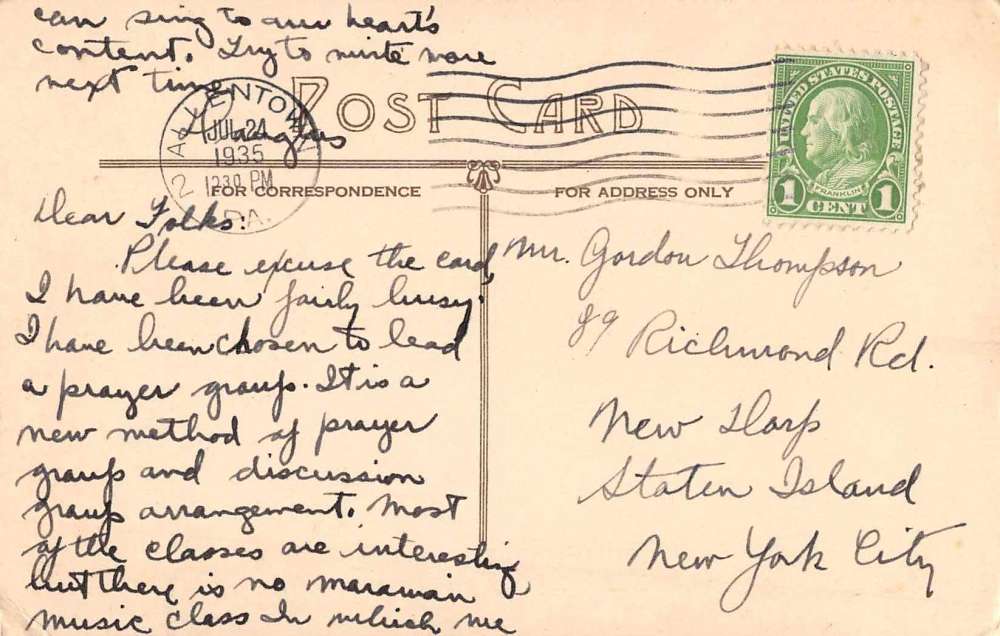 POST CARD
FOR CORRESPONDENCE
FOR ADDRESS ONLY
ALLENTOWN
JUL 24
1935
1230 PM
2 PA.
UNITED STATES POSTAGE
FRANKLIN
1 CENT 1
Dear Folks:
Please excuse the card,
I have been fairly busy.
I have been chosen to lead
a prayer group. It is a
new method of prayer
group and discussion
group arrangement. Most
of the classes are interesting
but there is no
music class In which we
can sing to our heart's
content. Try to write more
next time
Mr. Gordon Thompson
89 Richmond Rd.
New Dorp
Staten Island
New York City